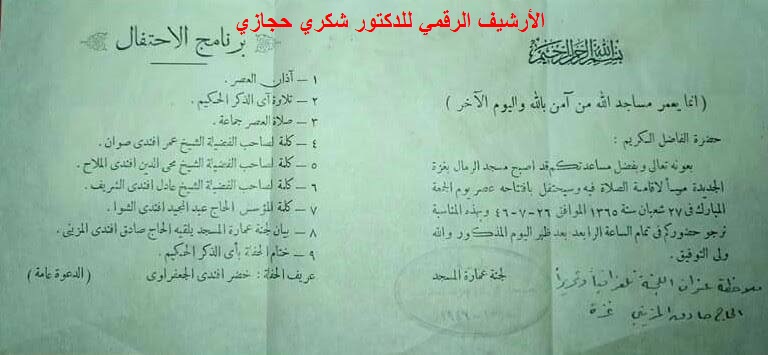 الأرشيف الرقمي للدكتور شكري حجازي
بسم الله الرحمن الرحيم
( انما يعمر مساجد الله من آمن بالله واليوم الآخر )
حضرة الفاضل الكريم :
بعونه تعالى وبفضل مساعدتكم قد اصبح مسجد الرمال بغزة
الجديدة مهيئاً لاقامة الصلاة فيه وسيحتفل بافتتاحه عصر يوم الجمعة
المبارك فى ٢٧ شعبان سنة ١٣٦٥ الموافق ٢٦-٧-٤٦ وبهذه المناسبة
نرجو حضوركم فى تمام الساعة الرابعة بعد ظهر اليوم المذكور والله
ولى التوفيق .
لجنة عمارة المسجد
ملاحظة عنوان اللجنة تلغرافياً وبريدياً
الحاج صادق المزيني غزة
برنامج الاحتفال
١ – آذان العصر .
٢ – تلاوة آى الذكر الحكيم .
٣ – صلاة العصر جماعة .
٤ – كلمة لصاحب الفضيلة الشيخ عمر افندى صوان .
٥ – كلمة لصاحب الفضيلة الشيخ محى الدين افندى الملاح .
٦ – كلمة لصاحب الفضيلة الشيخ عادل افندى الشريف .
٧ – كلمة المؤسس الحاج عبد المجيد افندى الشوا .
٨ – بيان لجنة عمارة المسجد يلقيه الحاج صادق افندى المزينى .
٩ – ختام الحفلة بأى الذكر الحكيم .
عريف الحفلة : خضر افندى الجعفراوى ( الدعوة عامة )